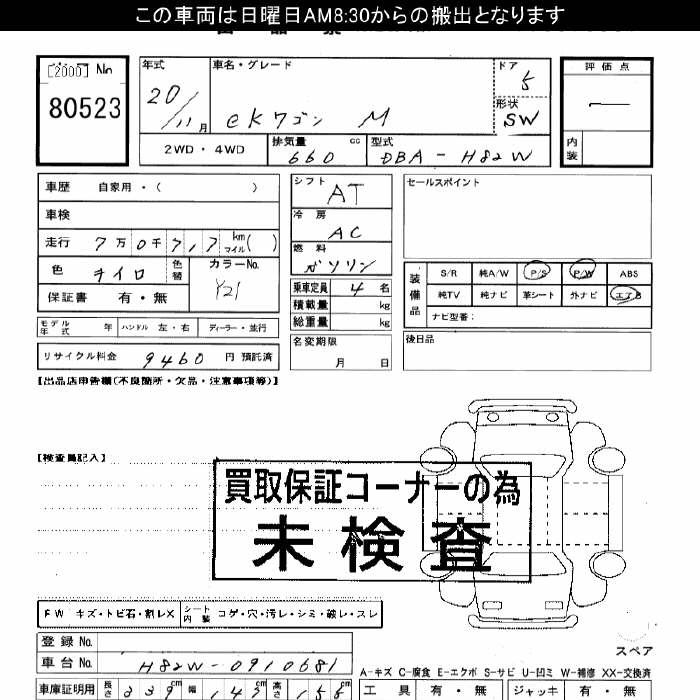 この車両は日曜日AM8:30からの搬出となります
[2000] No
80523
年式 20/11月
車名・グレード eKワゴン M
ドア 5
形状 SW
評価点 —
内装
2WD・4WD
排気量 660 cc
型式 DBA-H82W
車歴 自家用・( )
車検
走行 7万0千717 km マイル( )
色 キイロ
色替
カラーNo. Y21
保証書 有・無
シフト AT
冷房 AC
燃料 ガソリン
乗車定員 4名
積載量 kg
総重量 kg
セールスポイント
装備品
S/R 純A/W P/S P/W ABS
純TV 純ナビ 革シート 外ナビ エアB
ナビ型番:
モデル年式 年 ハンドル 左・右 ディーラー・並行
リサイクル料金 9460 円 預託済
名変期限 月 日
後日品
【出品店申告欄(不良箇所・欠品・注意事項等)】
【検査員記入】
買取保証コーナーの為
未検査
FW キズ・トビ石・割レX
シート内装 コゲ・穴・汚レ・シミ・破レ・スレ
登録 No.
車台 No. H82W-0910681
スペア
A-キズ C-腐食 E-エクボ S-サビ U-凹ミ W-補修 XX-交換済
車庫証明用 長さ 339cm 幅 147cm 高さ 155cm
工具 有・無 ジャッキ 有・無